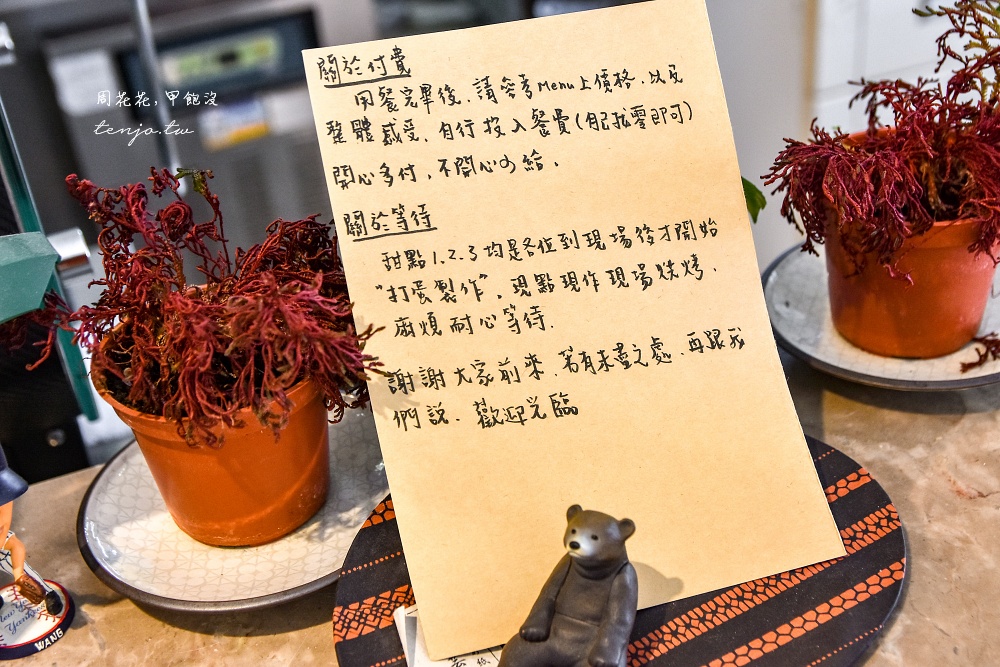 周花花,甲飽沒
tenjo.tw
關於付費
用餐完畢後.請參考Menu上價格.以及
整體感受.自行投入餐費(自己找零即可)
開心多付.不開心少給.
關於等待
甜點1.2.3均是各位到現場後才開始
"打蛋製作".現點現作現場烘烤.
麻煩耐心等待.
謝謝大家前來.若有未盡之處.再跟我
們說.歡迎光臨
New York
Yankees
WANG